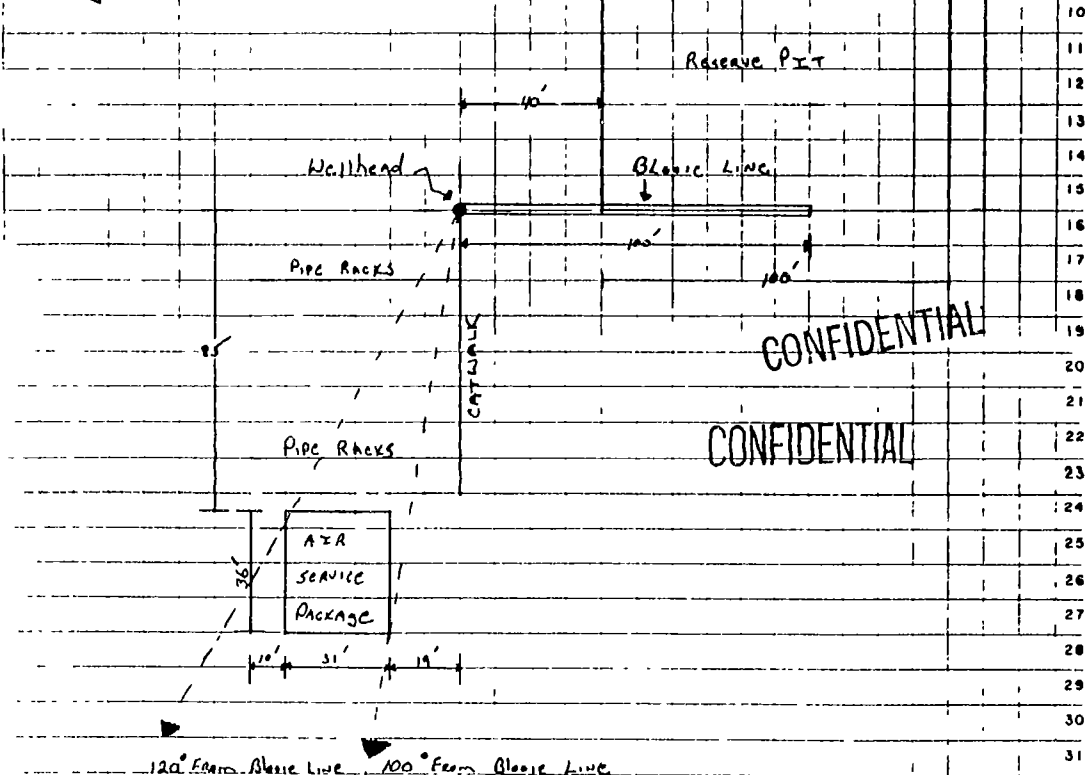 10
11
Reserve PIT
12
40'
13
14
Wellhead
BLooie LINE
15
16
100'
17
PIPE RACKS
100'
18
19
CONFIDENTIAL
85'
20
CATWALK
21
CONFIDENTIAL
22
PIPE RACKS
23
24
AIR
25
36'
SERVICE
26
PACKAGE
27
28
10'
31'
19'
29
30
120° From Blooie Line
100° From Blooie Line
31